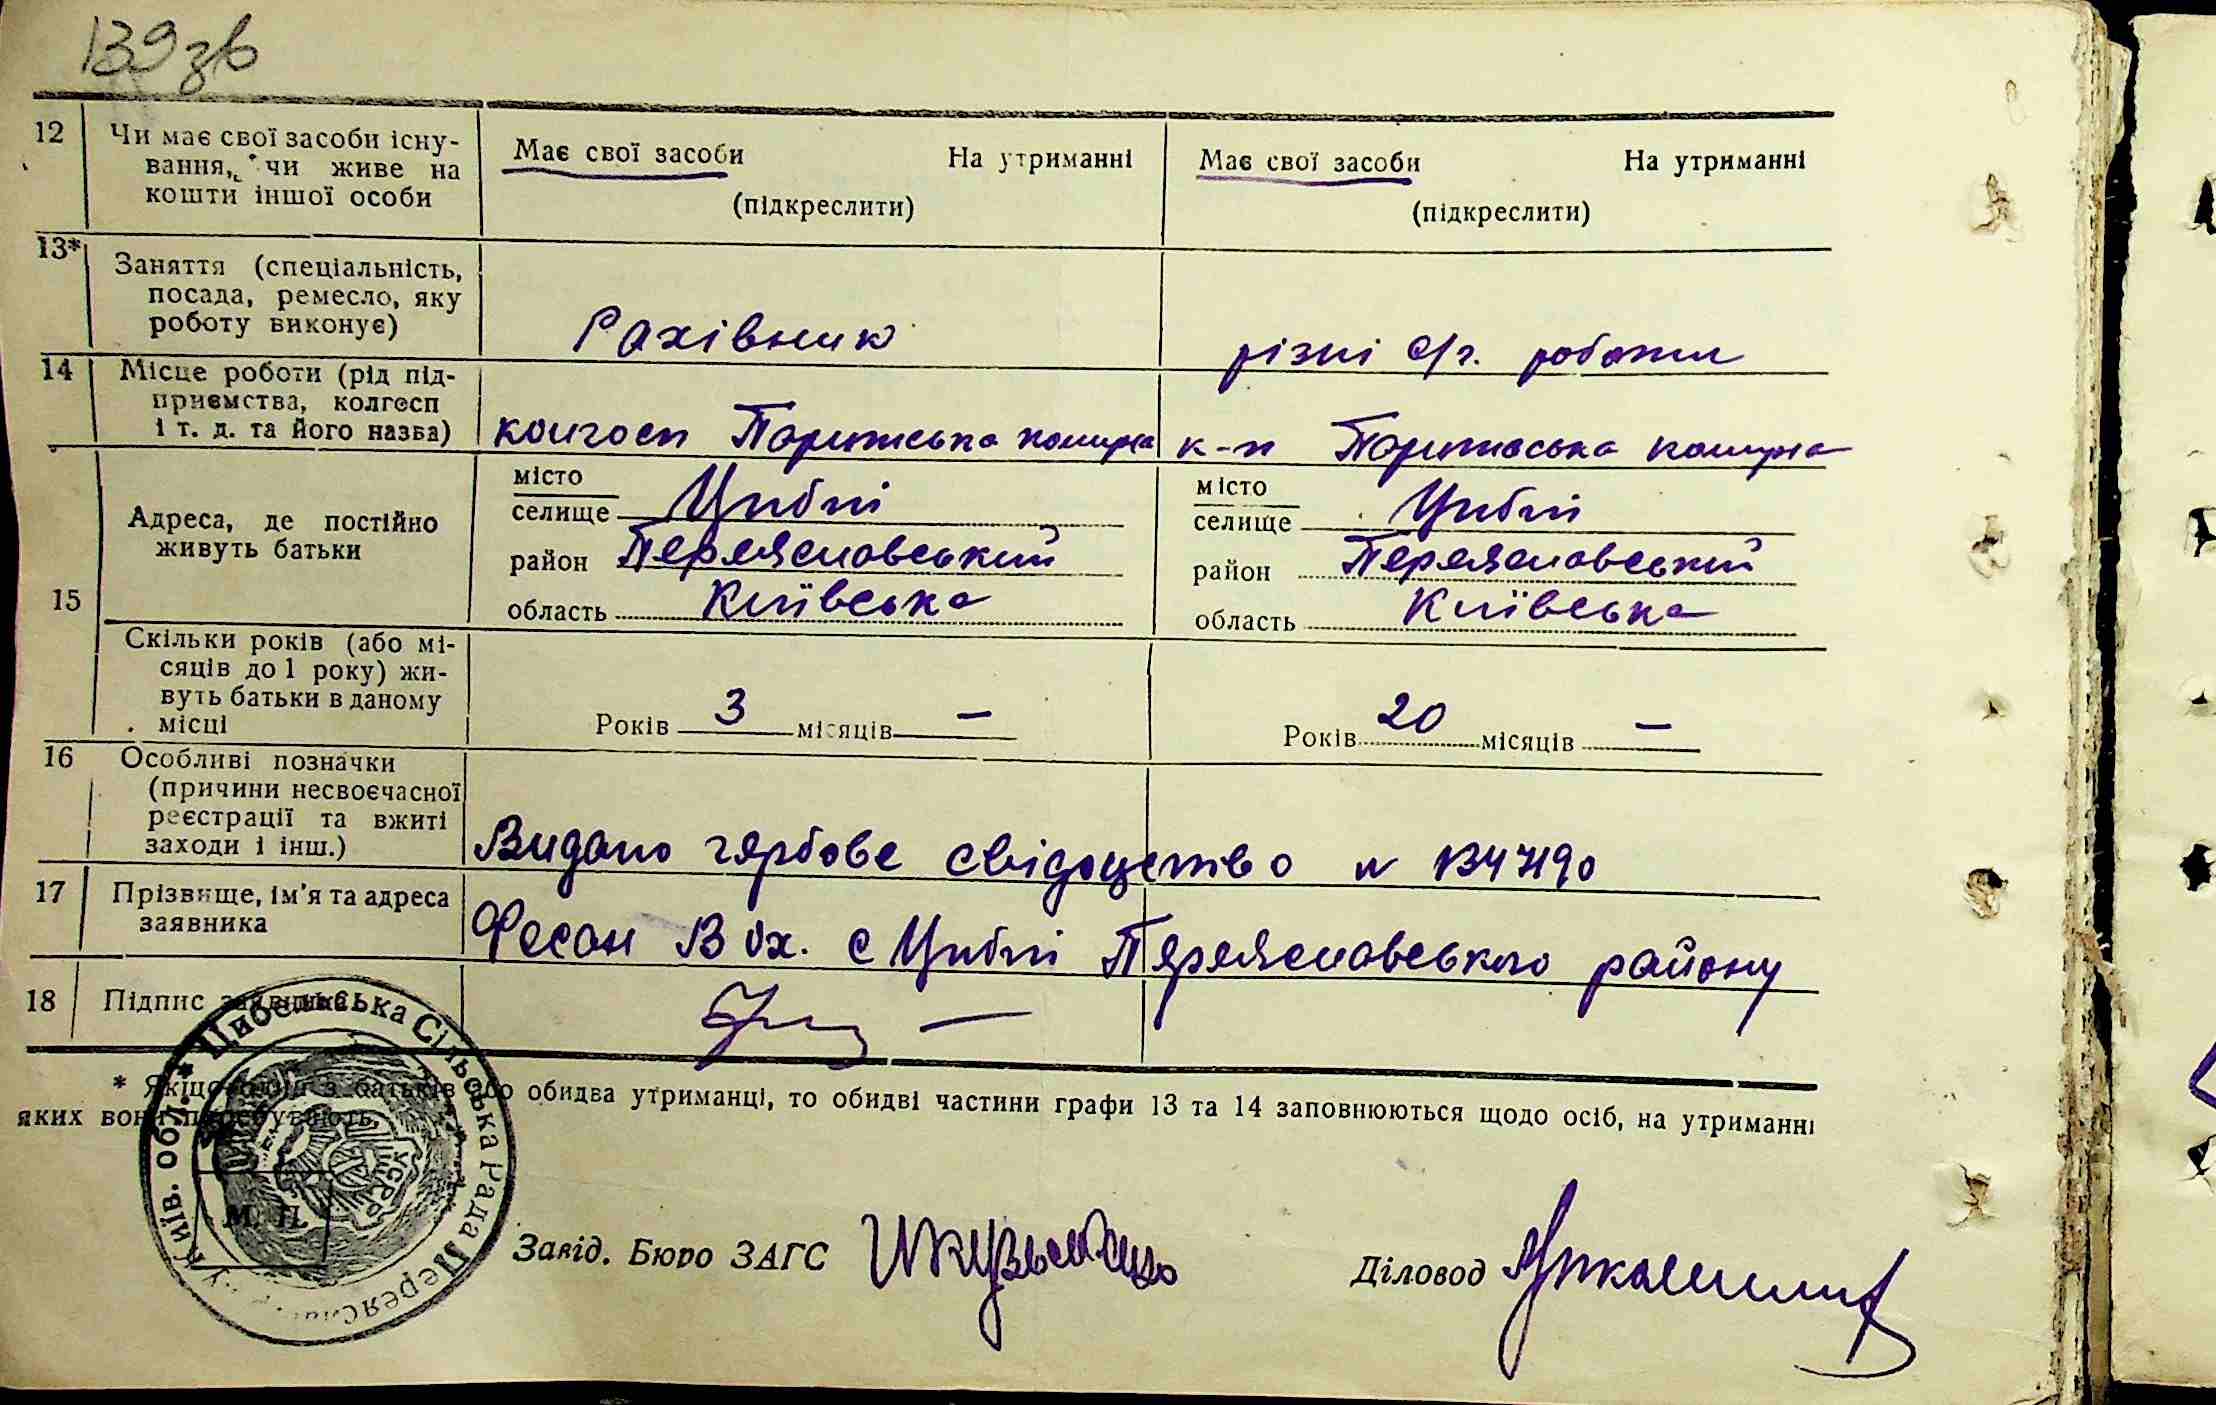 139 зв
12 Чи має свої засоби існу-
вання, чи живе на
кошти іншої особи
Має свої засоби На утриманні
(підкреслити)
Має свої засоби На утриманні
(підкреслити)
13* Заняття (спеціальність,
посада, ремесло, яку
роботу виконує)
Рахівник
різні с/г. роботи
14 Місце роботи (рід під-
приємства, колгосп
і т. д. та його назва)
колгосп Паризька комуна
к-п Паризька комуна
15
Адреса, де постійно
живуть батьки
місто
селище Циблі
район Переяславський
область Київська
місто
селище Циблі
район Переяславський
область Київська
Скільки років (або мі-
сяців до 1 року) жи-
вуть батьки в даному
місці
Років 3 місяців —
Років 20 місяців —
16 Особливі позначки
(причини несвоєчасної
реєстрації та вжиті
заходи і інш.)
Видано гербове свідоцтво N
17 Прізвище, ім'я та адреса
заявника
Фесан В Ох. с Циблі Переяславського району
18 Підпис заявника
* Якщо один з батьків або обидва утриманці, то обидві частини графи 13 та 14 заповнюються щодо осіб, на утриманні
яких вони перебувають.
Цибельська Сільська Рада Київ. обл.
УСРР
М. П.
Завід. Бюро ЗАГС
Діловод